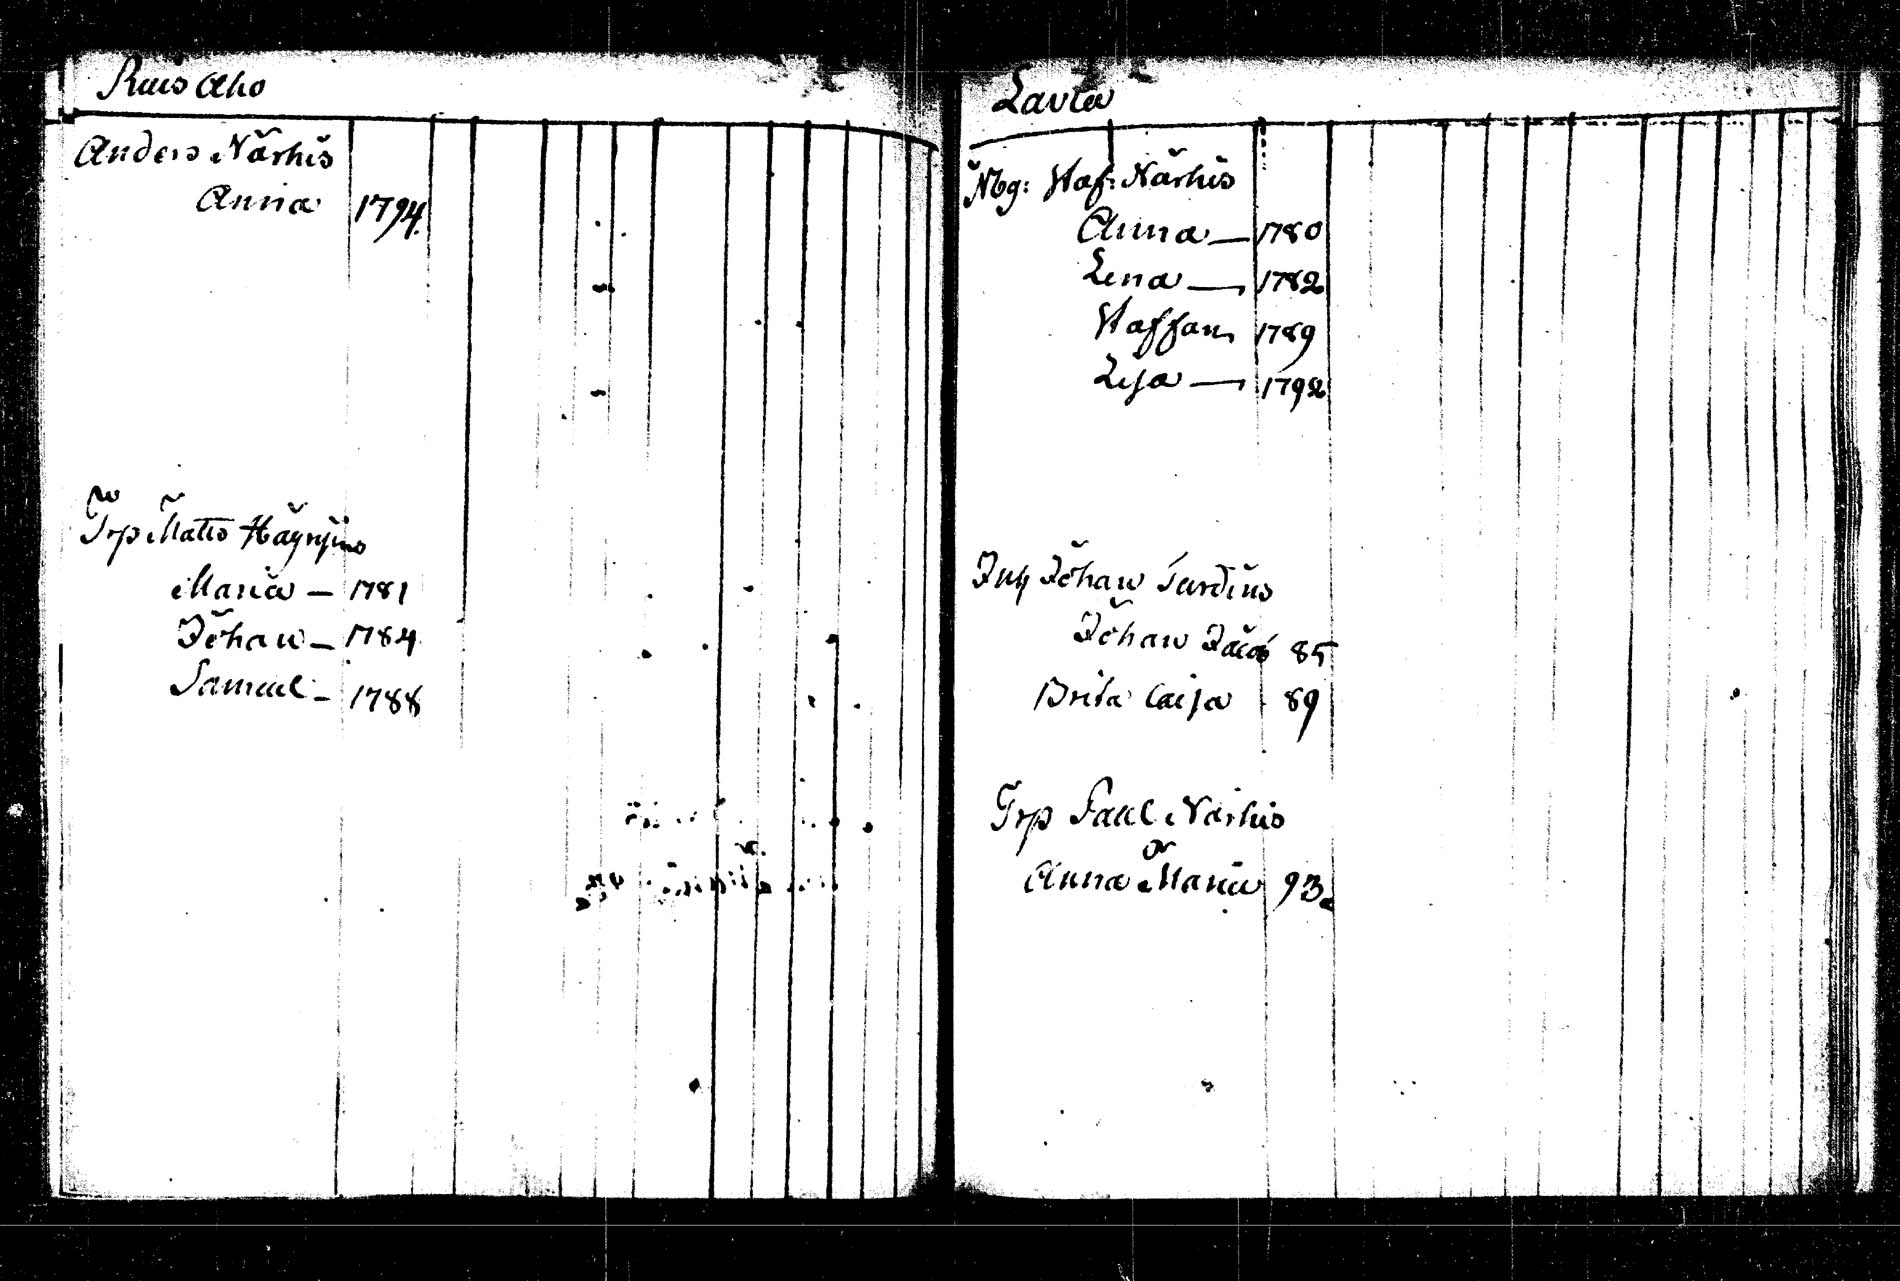 Ruis Aho
Anders Närhis
Anna 1794.
Trp Matts Häyrjins
Maria – 1781
Johan – 1784
Samuel – 1788
Lavia
Nbg: Staf: Närhis
Anna — 1780
Lena — 1782
Staffan 1789
Lisa — 1792
Inh Johan Sardins
Johan Jacob 85
Brita Caisa 89
Trp Paul Närhis
Anna Maria 93